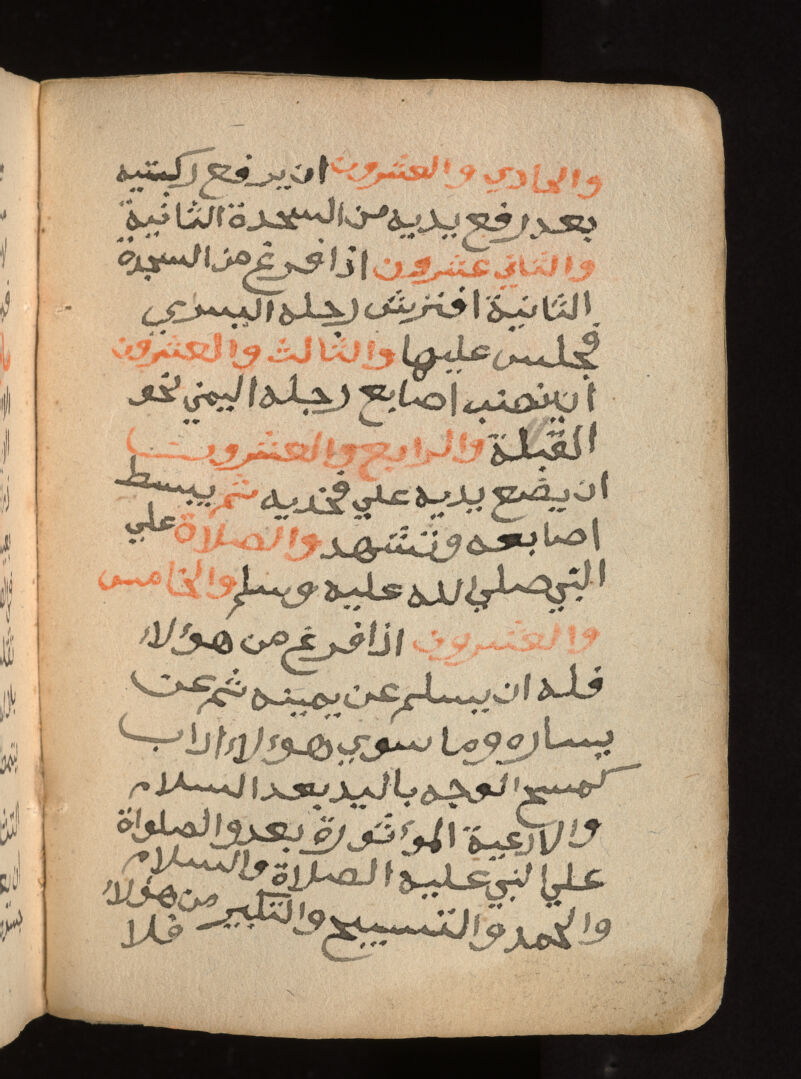 والحادي والعشرون ان يرفع ركبتيه
بعد رفع يديه من السجدة الثانية
والثاني عشرون اذا فرغ من السجدة
الثانية افترش رجله اليسري
فجلس عليها والثالث والعشرون
ان ينصب اصابع رجله اليمني نحو
القبلة والرابع والعشرون
ان يضع يديه علي فخذيه ثم يبسط
اصابعه وتشهد والصلاة علي
النبي صلي الله عليه وسلم والخامس
والعشرون اذا فرغ من هؤلاء
فله ان يسلم عن يمينه ثم عن
يساره وما سوي هؤلاء اداب
كمسح الوجه باليد بعد السلام
والادعية الموءثورة بعد والصلواة
علي النبي عليه الصلاة والسلام
والحمد والتسبيح والتكبير من هؤلاء
فلا